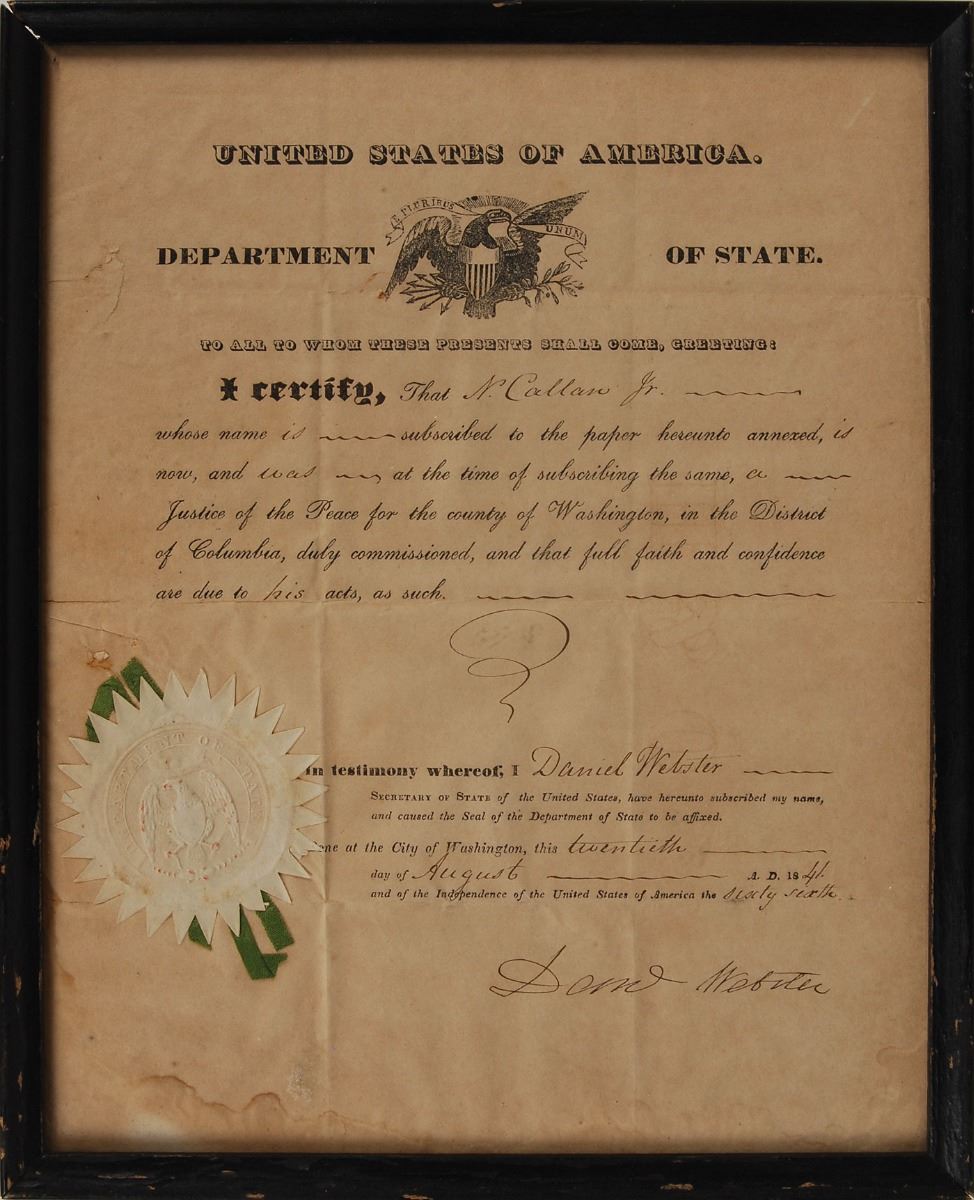 UNITED STATES OF AMERICA.
E PLURIBUS UNUM
DEPARTMENT OF STATE.
TO ALL TO WHOM THESE PRESENTS SHALL COME, GREETING:
I certify, That N. Callan Jr.
whose name is subscribed to the paper hereunto annexed, is
now, and was at the time of subscribing the same, a
Justice of the Peace for the county of Washington, in the District
of Columbia, duly commissioned, and that full faith and confidence
are due to his acts, as such.
In testimony whereof, I Daniel Webster
SECRETARY OF STATE of the United States, have hereunto subscribed my name,
and caused the Seal of the Department of State to be affixed.
Done at the City of Washington, this twentieth
day of August A. D. 1841.
and of the Independence of the United States of America the sixty sixth.
Danl Webster